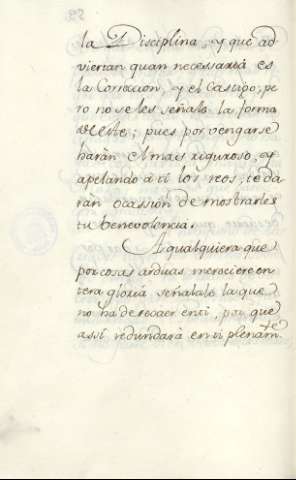 59.
la Disciplina, y que ad
viertan quan necessaria es
la Correccion, y el Castigo; pe
ro no se les señale la forma
de este; pues por vengarse
haràn el mas riguroso, y
apelando à ti los reos, te da
ràn ocassion de mostrarles
tu benevolencia.
A qualquiera que
por cosas arduas mereciere en
tera gloria señalale la que
no ha de recaer en ti, por que
assi redundarà en ti plenam.te